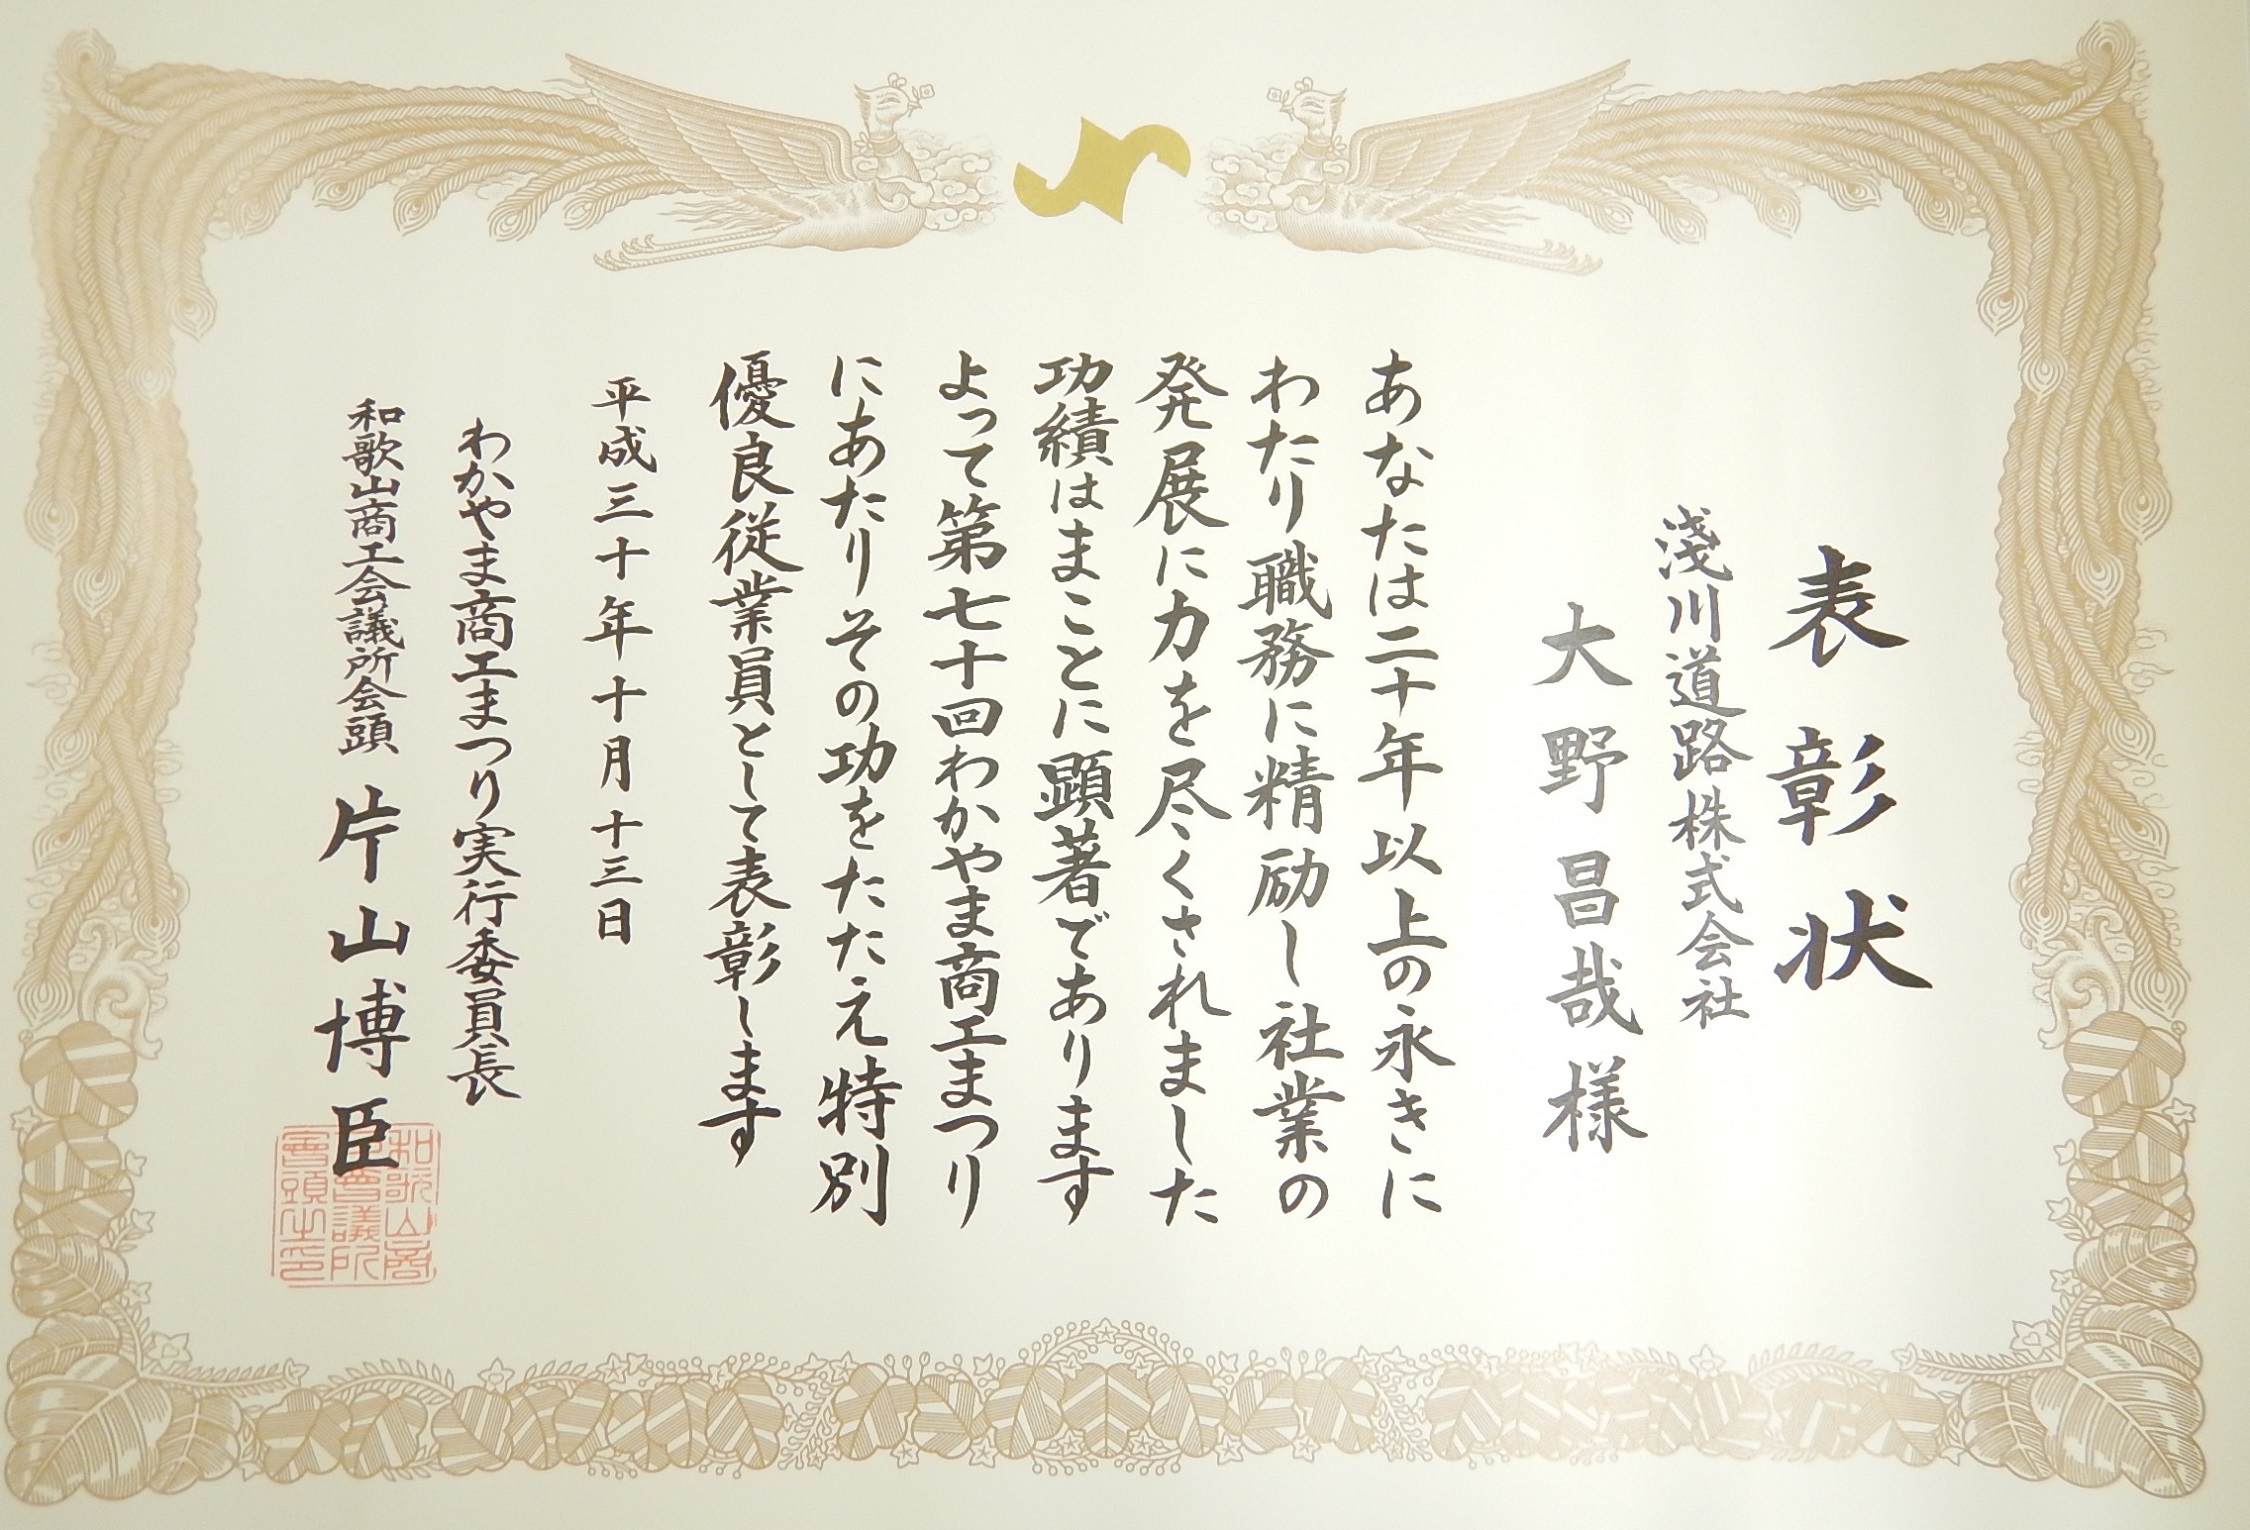 表彰状
淺川道路株式会社
大野昌哉様
あなたは二十年以上の永きに
わたり職務に精励し社業の
発展に力を尽くされました
功績はまことに顕著であります
よって第七十回わかやま商工まつり
にあたりその功をたたえ特別
優良従業員として表彰します
平成三十年十月十三日
わかやま商工まつり実行委員長
和歌山商工会議所会頭 片山博臣
和歌山商
工會議所
會頭之印